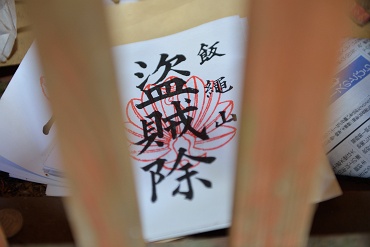 飯縄山
盗賊除